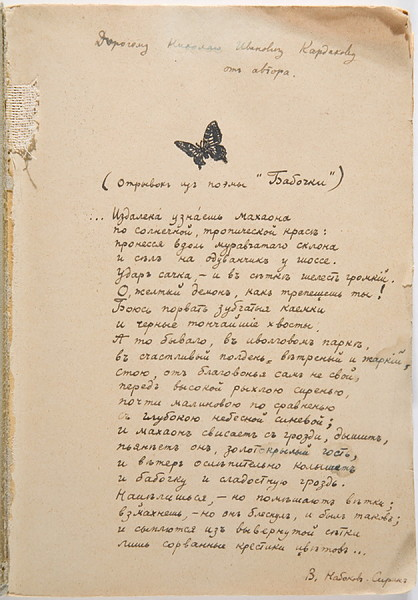 Дорогому Николаю Ивановичу Кардакову
отъ автора.
(Отрывокъ изъ поэмы "Бабочки")
... Издалека узнаешь махаона
по солнечной, тропической красѣ:
пронесся вдоль муравчатаго склона
и сѣлъ на одуванчикъ у шоссе.
Ударъ сачка, – и въ сѣткѣ шелестъ громкій.
О, желтый демонъ, какъ трепещешь ты!
Боюсь порвать зубчатыя каемки
и черные тончайшіе хвосты.
А то бывало, въ иволговомъ паркѣ,
въ счастливый полдень, вѣтреный и жаркій,
стою, отъ благовонья самъ не свой,
передъ высокой рыхлою сиренью,
почти малиновою по сравненью
съ глубокою небесной синевой;
и махаонъ свисаетъ съ грозди, дышитъ,
пьянѣетъ онъ, золотокрылый гость,
и вѣтеръ ослѣпительно колышетъ
и бабочку и сладостную гроздь.
Нацѣлишься, – но помѣшаютъ вѣтки;
взмахнешь, – но онъ блеснулъ, и былъ таковъ;
и сыплются изъ вывернутой сѣтки
лишь сорванные крестики цвѣтовъ...
В. Набоков-Сиринъ